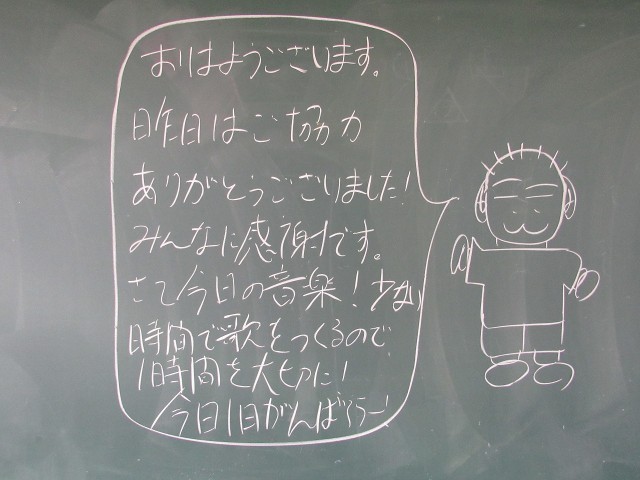 おはようございます。
昨日はご協力
ありがとうございました!
みんなに感謝です。
さて今日の音楽!少ない
時間で歌をつくるので
1時間を大切に!
今日1日がんばろう!